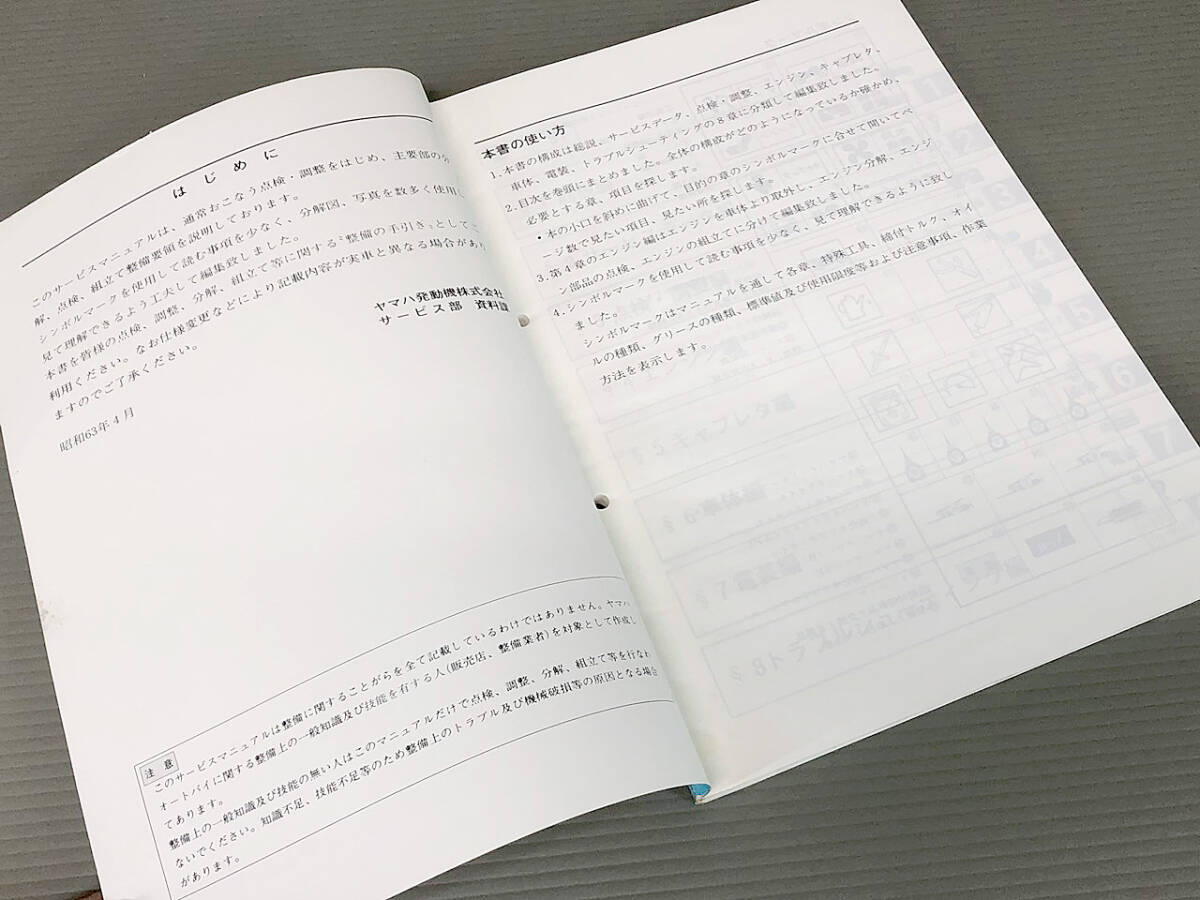 はじめに
このサービスマニュアルは、通常おこなう点検・調整をはじめ、主要部の分
解、点検、組立て整備要領を説明しております。
シンボルマークを使用して読む事項を少なく、分解図、写真を数多く使用し
見て理解できるよう工夫して編集致しました。
本書を皆様の点検、調整、分解、組立て等に関する〝整備の手引き〟としてご
利用ください。なお仕様変更などにより記載内容が実車と異なる場合があり
ますのでご了承ください。
ヤマハ発動機株式会社
サービス部 資料課
昭和63年4月
注意
このサービスマニュアルは整備に関することがらを全て記載しているわけではありません。ヤマハ
オートバイに関する整備上の一般知識及び技能を有する人(販売店、整備業者)を対象として作成し
てあります。
整備上の一般知識及び技能の無い人はこのマニュアルだけで点検、調整、分解、組立て等を行なわ
ないでください。知識不足、技能不足等のため整備上のトラブル及び機械破損等の原因となる場合
があります。
本書の使い方
1.本書の構成は総説、サービスデータ、点検・調整、エンジン、キャブレタ、
車体、電装、トラブルシューティングの8章に分類して編集致しました。
2.目次を巻頭にまとめました。全体の構成がどのようになっているか確かめ、
必要とする章、項目を探します。
・本の小口を斜めに曲げて、目的の章のシンボルマークに合せて開いてペ
ージ数で見たい項目、見たい所を探します。
3.第4章のエンジン編はエンジンを車体より取外し、エンジン分解、エンジ
ン部品の点検、エンジンの組立てに分けて編集致しました。
4.シンボルマークを使用して読む事項を少なく、見て理解できるように致し
ました。
シンボルマークはマニュアルを通して各章、特殊工具、締付トルク、オイ
ルの種類、グリースの種類、標準値及び使用限度等および注意事項、作業
方法を表示します。